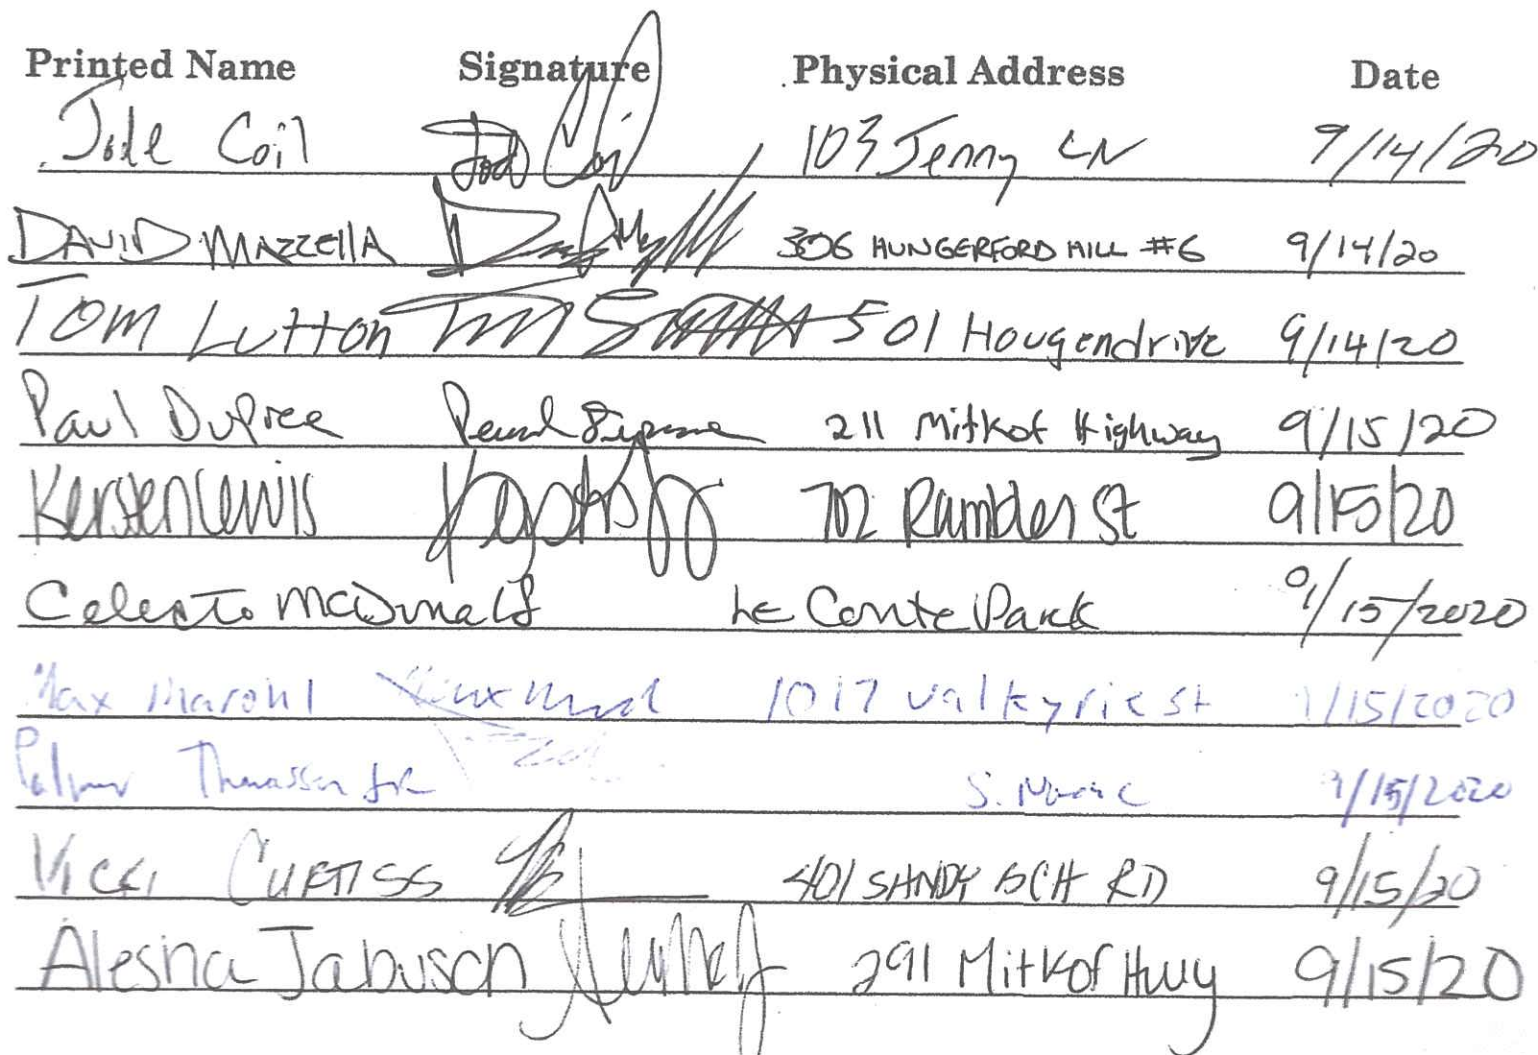 Printed Name Signature Physical Address Date
Jode Coil Jod Coil 103 Jenny LN 9/14/20
DAVID MAZZELLA 306 HUNGERFORD HILL #6 9/14/20
Tom Lutton 501 Hougendrive 9/14/20
Paul DuPree 211 Mitkof Highway 9/15/20
Kersten Lewis 702 Rambler St 9/15/20
Celeste McDonald Le Conte Park 9/15/2020
Max Marohl 1017 valkyrie st 9/15/2020
Thomassen Jr S. 9/15/2020
Vicki CURTISS 401 SANDY BCH RD 9/15/20
Alesha Jabusch 291 Mitkof Hwy 9/15/20